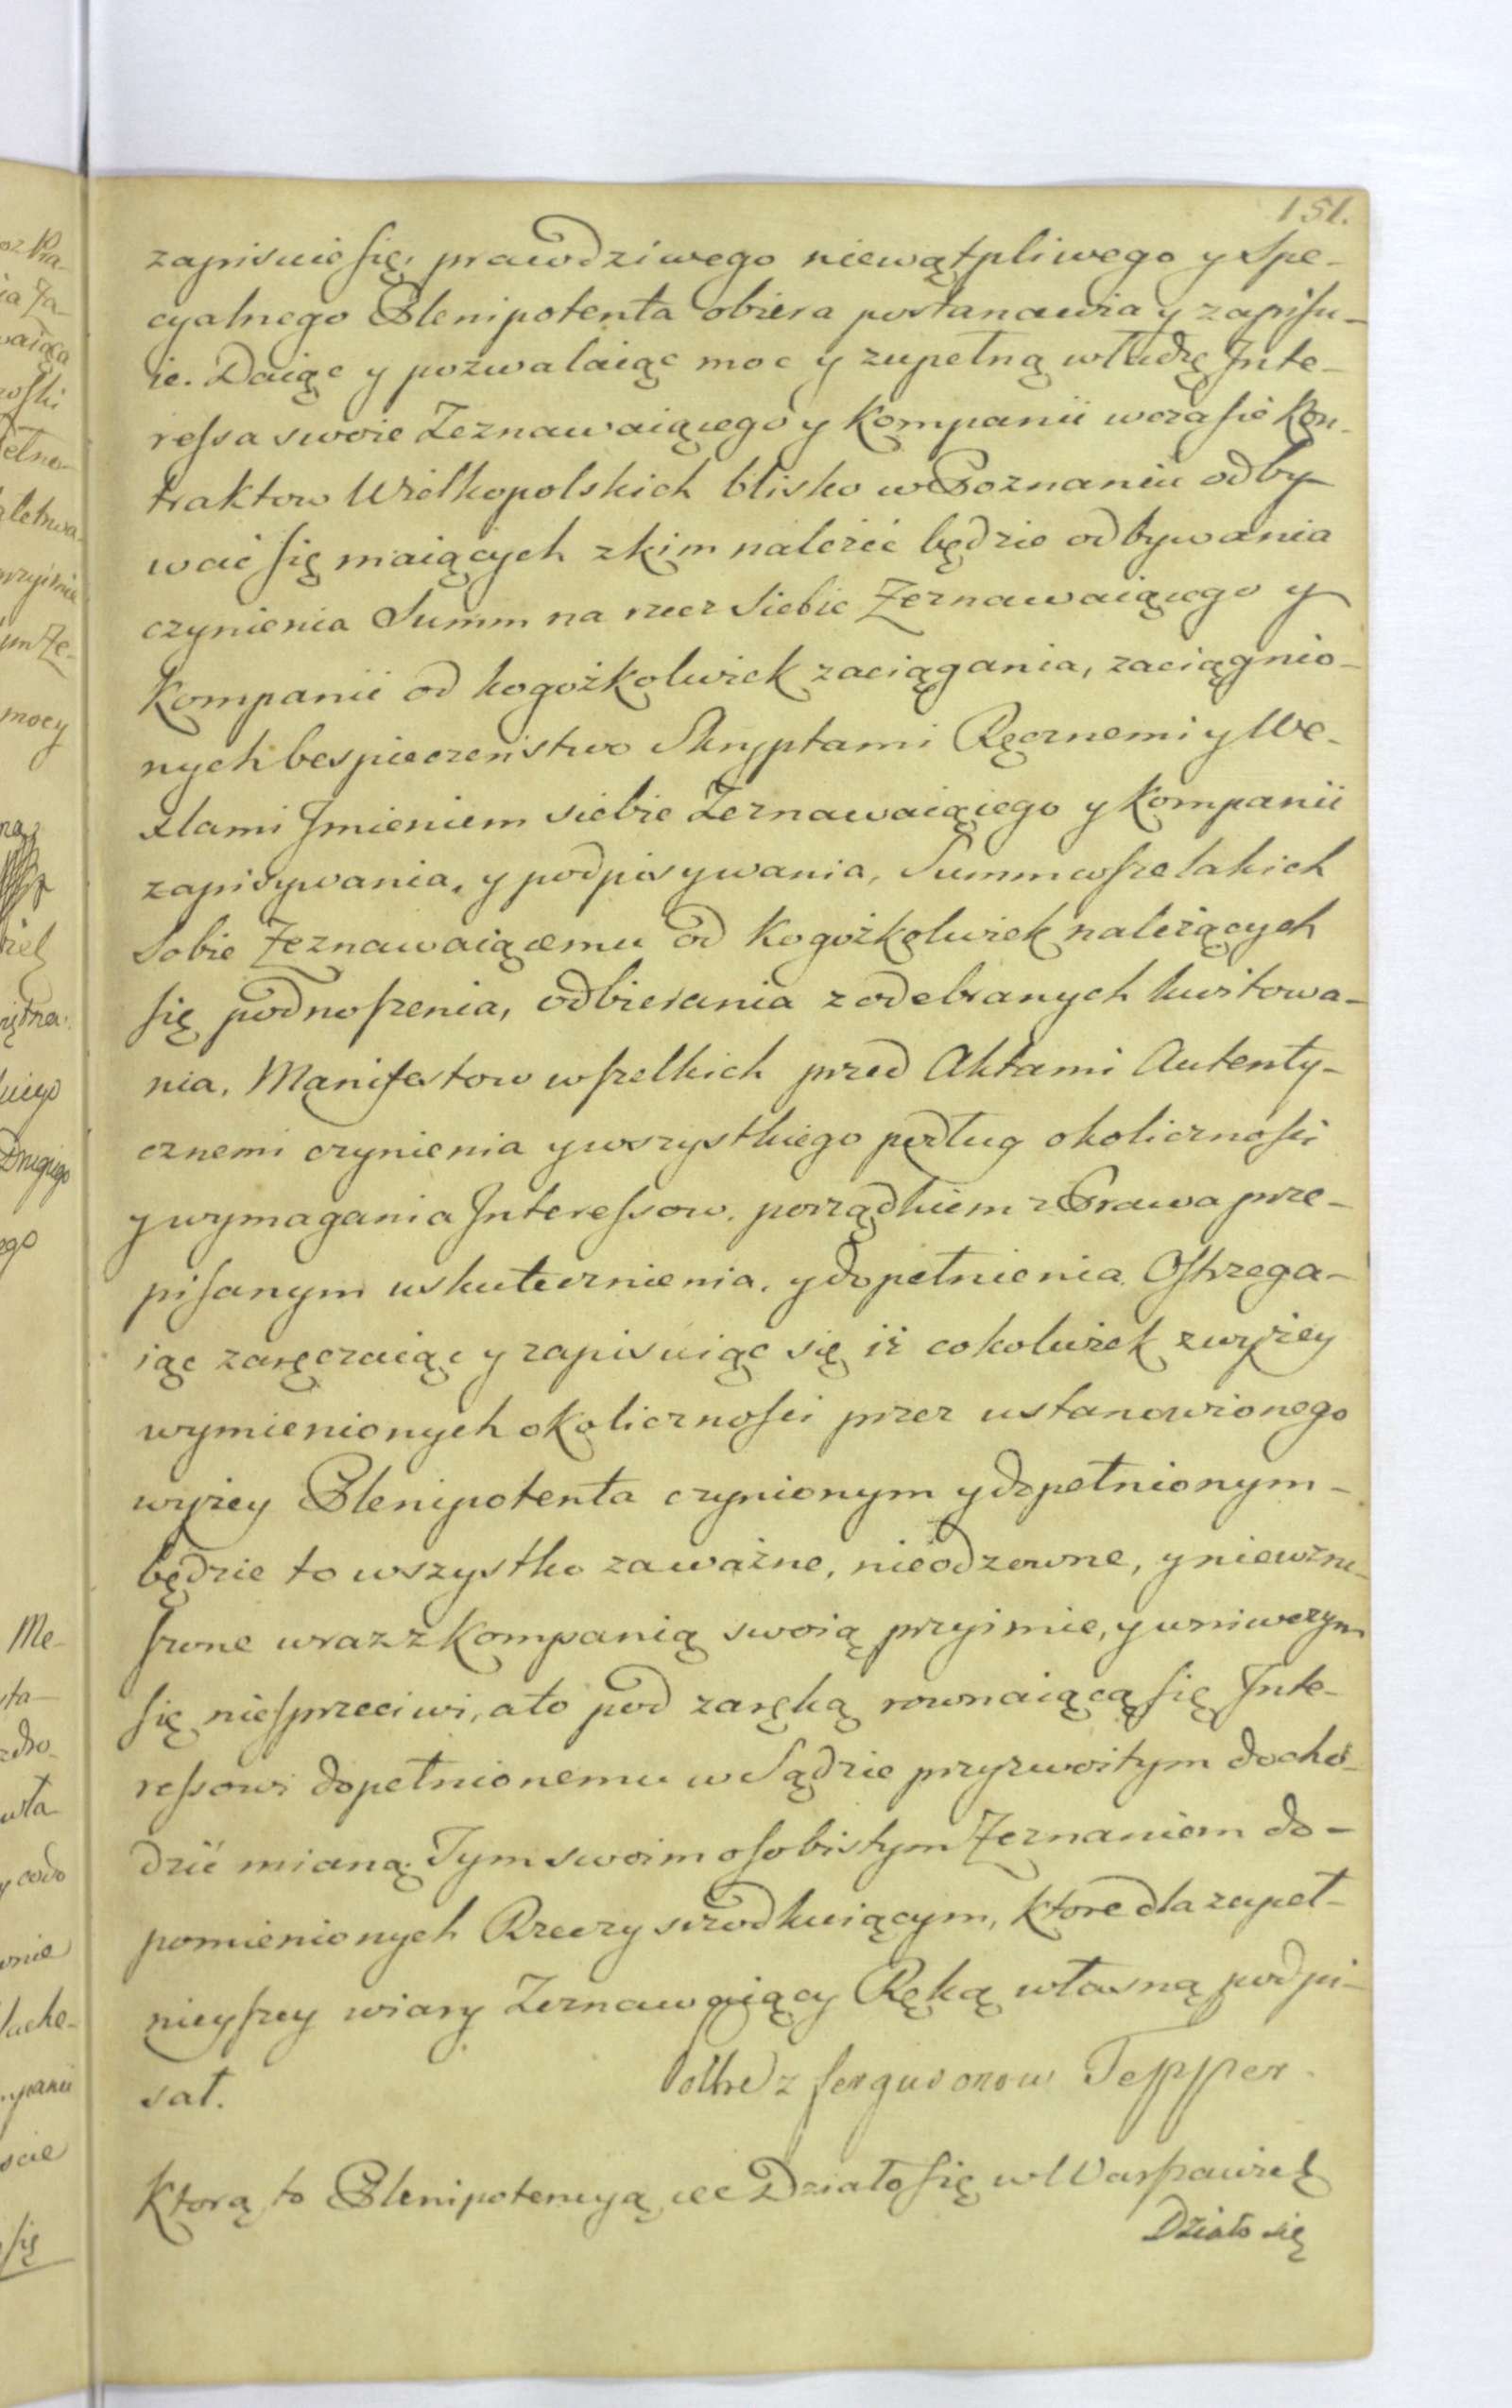 151.
zapisuie się, prawdziwego niewątpliwego y Spe-
cyalnego Plenipotenta obiera postanawia y zapisu-
ie. Daiąc y pozwalaiąc moc y zupełną władzę Inte-
ressa swoie Zeznawaiącego y Kompanii wczasie Kon-
traktow Wielkopolskich blisko w Poznaniu odby-
wać się maiących zkim należeć będzie odbywania
czynienia Summ na rzecz Siebie Zeznawaiącego y
Kompanii od kogożkolwiek zaciągania, zaciągnio-
nych bespieczeństwo Skryptami Ręcznemi y We-
xlami Imieniem siebie Zeznawaiąiego y Kompanii
zapisywania, y podpisywania, Summ wszelakich
Sobie Zeznawaiącemu od Kogożkolwiek należących
się podnoszenia, odbierania z odebranych kwitowa-
nia, Manifestow wszelkich przed Aktami Autenty-
cznemi czynienia y wszystkiego podług okoliczności
y wymagania Interessow, porządkiem z Prawa prze-
pisanym uskutecznienia, y dopełnienia. Ostrzega-
iąc zaręczaiąc y zapisuiąc się iż cokolwiek zwyżey
wymienionych okoliczności przez ustanowionego
wyżey Plenipotenta czynionym y dopełnionym-
będzie to wszystko za ważne, nieodzowne, y niewzru-
szone wraz z Kompanią swoią przyimie, y wniwczym
się niesprzeciwi, a to pod zaręką rownaiącą się Inte-
ressowi dopełnionemu w Sądzie przyzwoitym docho-
dzić mianą. Tym swoim osobistym Zeznaniem do-
pomienionych Rzeczy srzodkuiącym, ktore dla zupeł-
nieyszey wiary Zeznawaiący Ręką własną podpi-
sał.
z fergusonow Tepper.
Ktorą to Plenipotencyą etc Działo się w Warszawie
Działo się